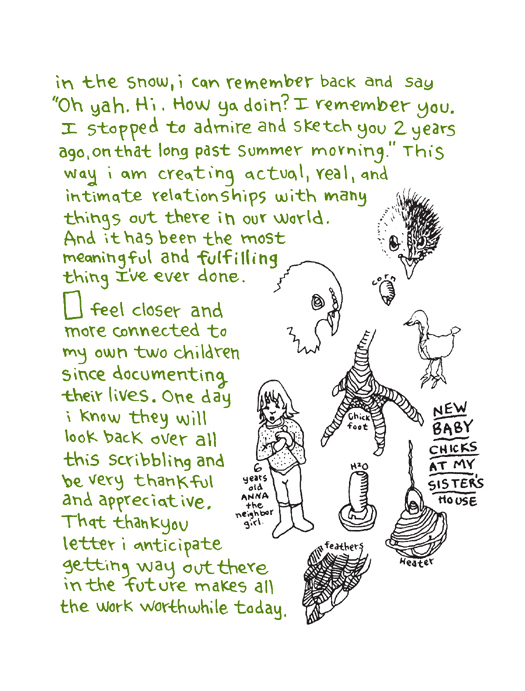 in the snow, i can remember back and say
"Oh yah. Hi. How ya doin? I remember you.
I stopped to admire and sketch you 2 years
ago, on that long past summer morning." This
way i am creating actual, real, and
intimate relationships with many
things out there in our world.
And it has been the most
meaningful and fulfilling
thing I've ever done.
I feel closer and
more connected to
my own two children
since documenting
their lives. One day
i know they will
look back over all
this scribbling and
be very thankful
and appreciative.
That thankyou
letter i anticipate
getting way out there
in the future makes all
the work worthwhile today.
corn
chick
foot
NEW
BABY
CHICKS
AT MY
SISTER'S
HOUSE
6
years
old
ANNA
the
neighbor
girl.
H2O
Heater
feathers